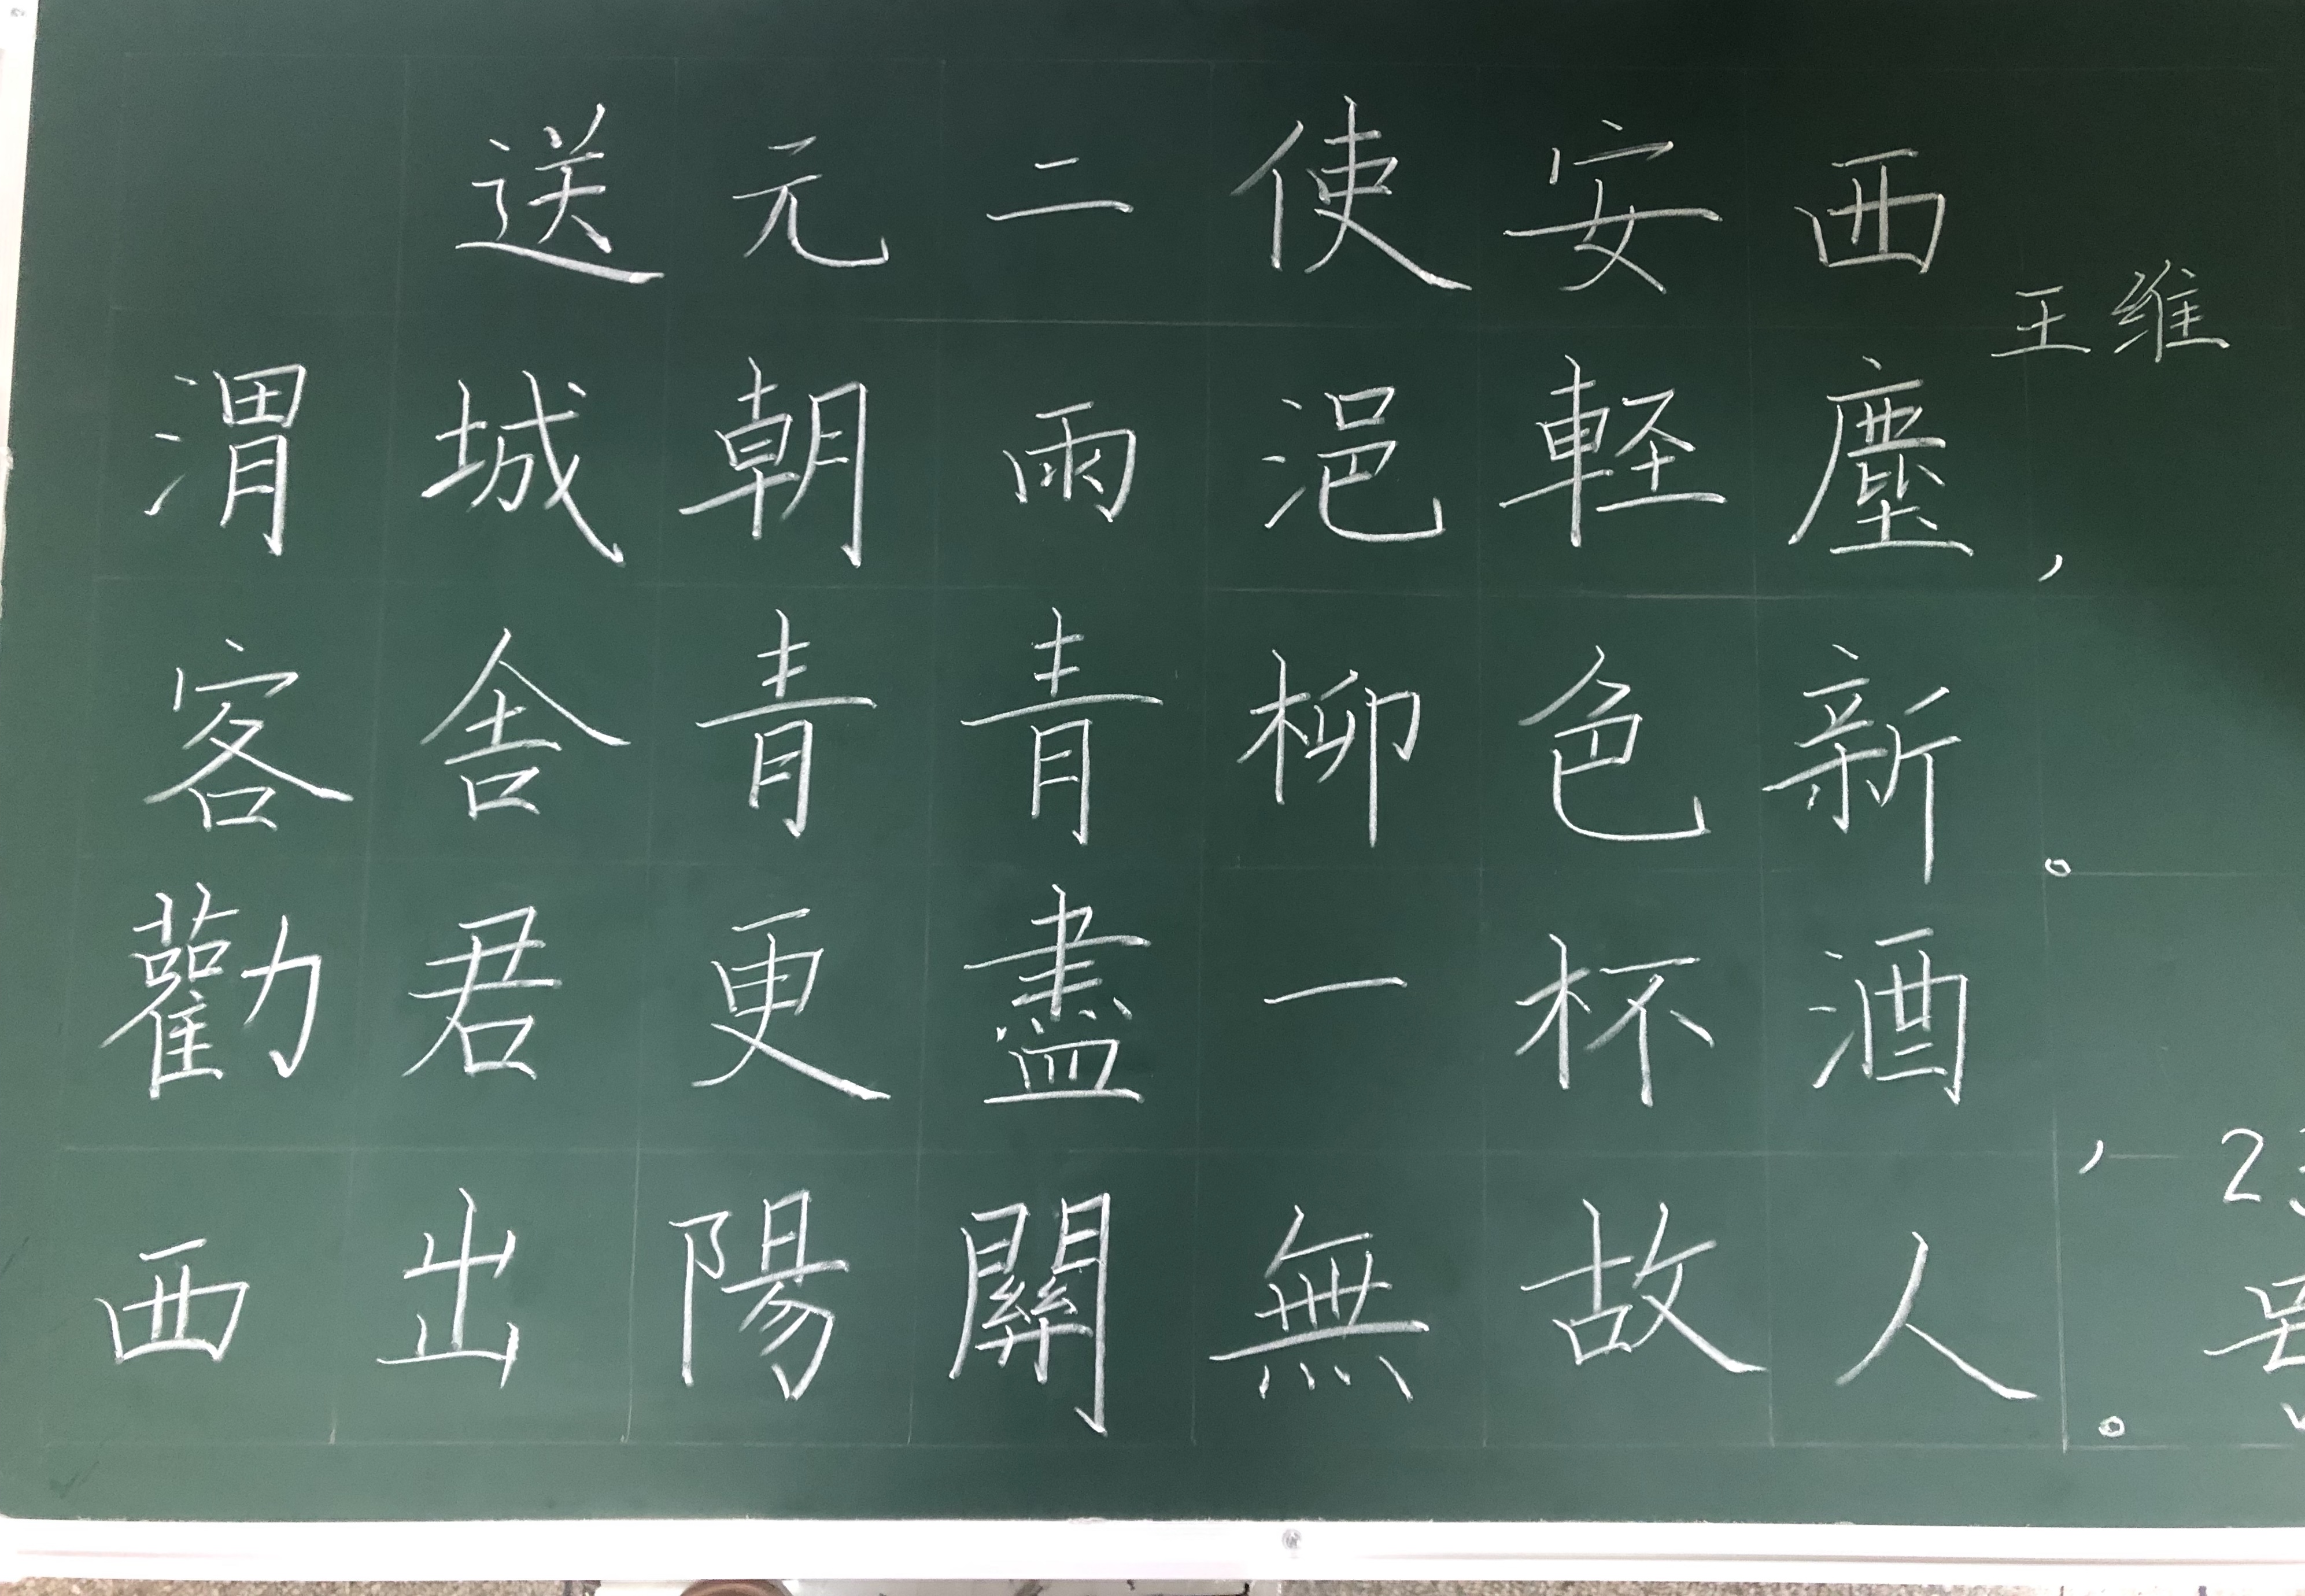 送元二使安西
王维
渭城朝雨浥軽塵，
客舍青青柳色新。
勸君更盡一杯酒，
西出陽關無故人。
2